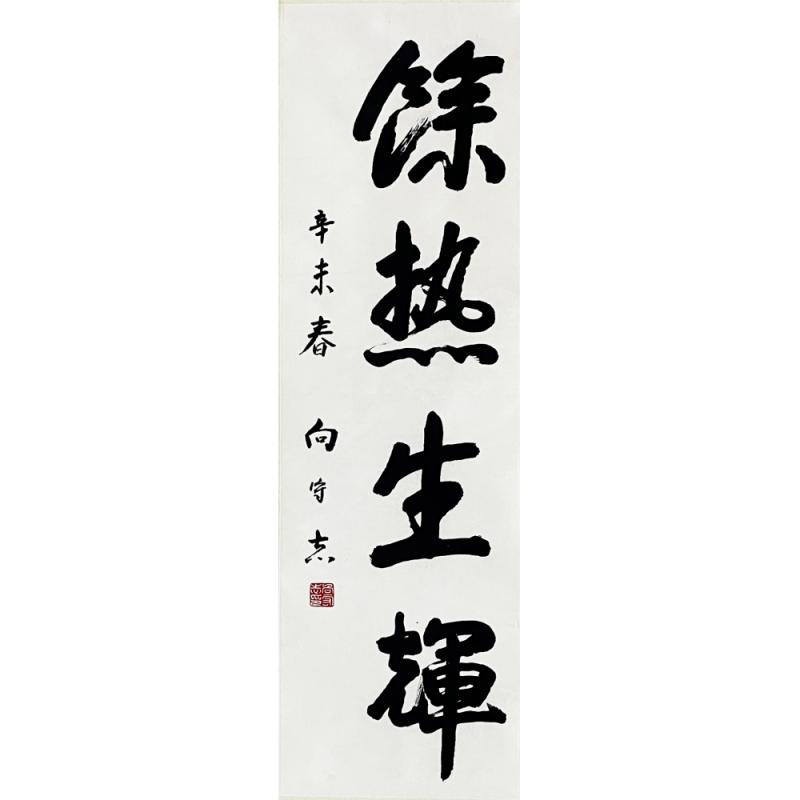 餘热生輝
辛未春 向守志